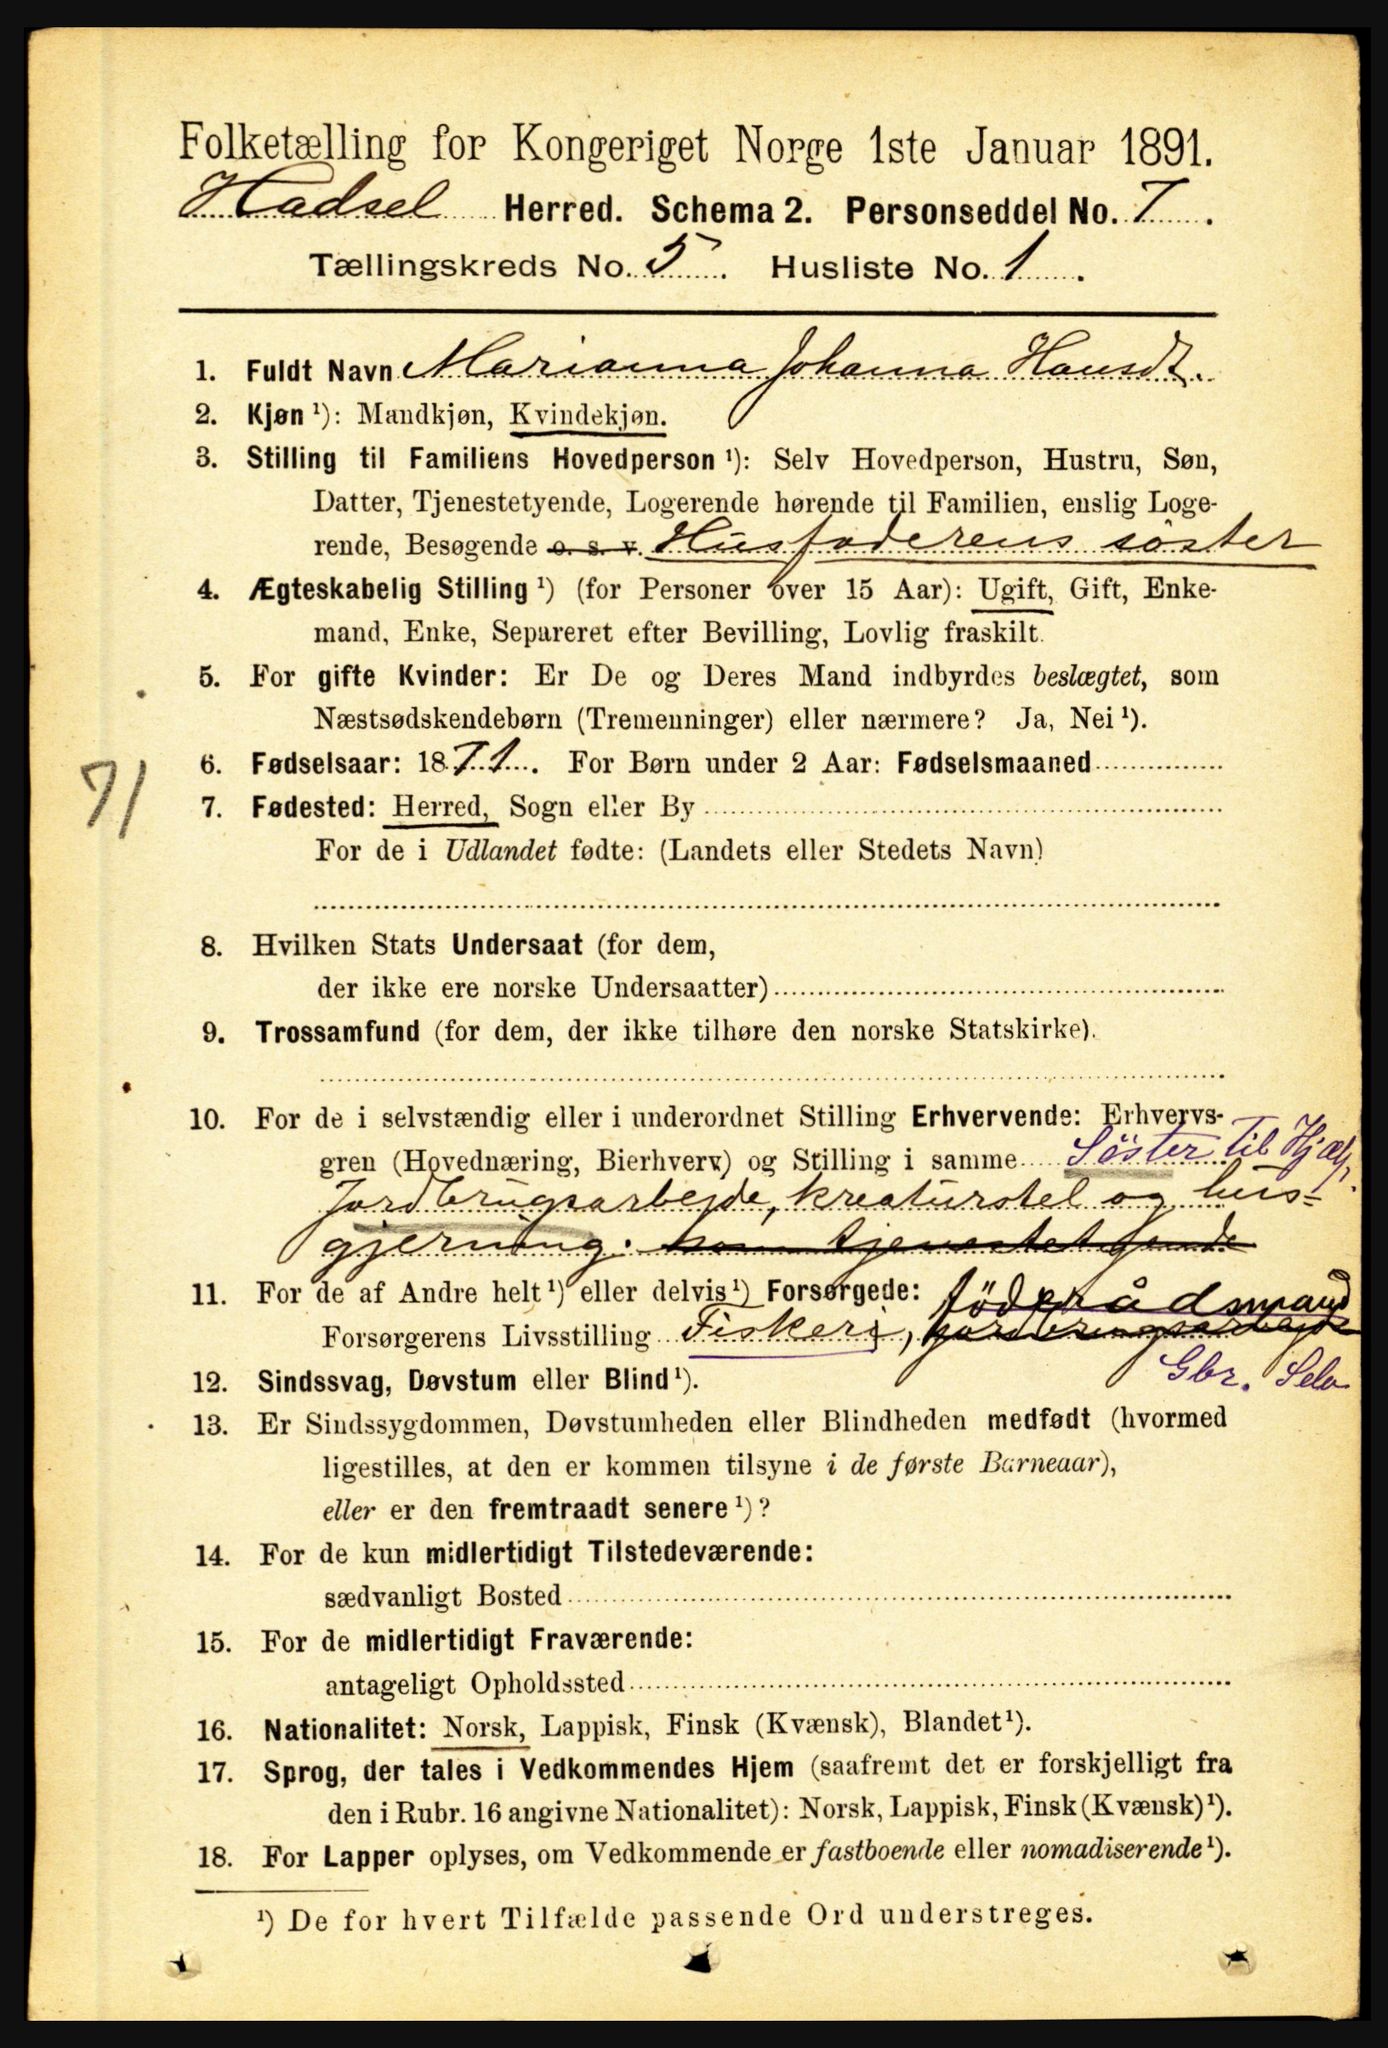 Folketælling for Kongeriget Norge 1ste Januar 1891.
Hadsel Herred. Schema 2. Personseddel No. 7.
Tællingskreds No. 5. Husliste No. 1.
1. Fuldt Navn Marianna Johanna Hansdt.
2. Kjøn ¹): Mandkjøn, Kvindekjøn.
3. Stilling til Familiens Hovedperson ¹): Selv Hovedperson, Hustru, Søn,
Datter, Tjenestetyende, Logerende hørende til Familien, enslig Loge-
rende, Besøgende o. s. v. Husfaderens søster
4. Ægteskabelig Stilling ¹) (for Personer over 15 Aar): Ugift, Gift, Enke-
mand, Enke, Separeret efter Bevilling, Lovlig fraskilt.
5. For gifte Kvinder: Er De og Deres Mand indbyrdes beslægtet, som
Næstsødskendebørn (Tremenninger) eller nærmere? Ja, Nei ¹).
6. Fødselsaar: 1871. For Børn under 2 Aar: Fødselsmaaned
71
7. Fødested: Herred, Sogn eller By
For de i Udlandet fødte: (Landets eller Stedets Navn)
8. Hvilken Stats Undersaat (for dem,
der ikke ere norske Undersaatter)
9. Trossamfund (for dem, der ikke tilhøre den norske Statskirke).
10. For de i selvstændig eller i underordnet Stilling Erhvervende: Erhvervs-
gren (Hovednæring, Bierhverv) og Stilling i samme Söster til Hjælp.
Jordbrugsarbejde, kreaturstel og hus-
gjerning. som tjenestetyende
11. For de af Andre helt ¹) eller delvis ¹) Forsørgede: föderådmand
Forsørgerens Livsstilling Fiskeri, jordbrugsarbejde
Gbr. Selv
12. Sindssvag, Døvstum eller Blind ¹).
13. Er Sindssygdommen, Døvstumheden eller Blindheden medfødt (hvormed
ligestilles, at den er kommen tilsyne i de første Barneaar),
eller er den fremtraadt senere ¹)?
14. For de kun midlertidigt Tilstedeværende:
sædvanligt Bosted
15. For de midlertidigt Fraværende:
antageligt Opholdssted
16. Nationalitet: Norsk, Lappisk, Finsk (Kvænsk), Blandet ¹).
17. Sprog, der tales i Vedkommendes Hjem (saafremt det er forskjelligt fra
den i Rubr. 16 angivne Nationalitet): Norsk, Lappisk, Finsk (Kvænsk) ¹).
18. For Lapper oplyses, om Vedkommende er fastboende eller nomadiserende ¹).
¹) De for hvert Tilfælde passende Ord understreges.